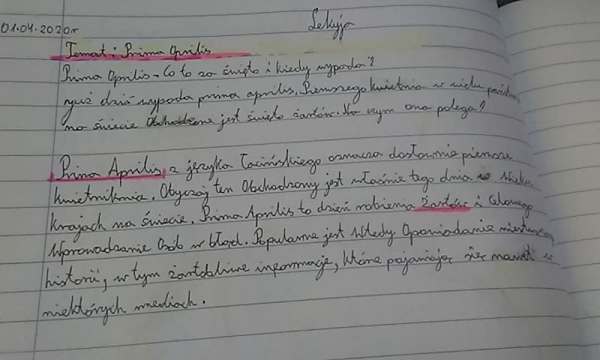 01.04.2020r Lekcja
Temat: Prima Aprilis
Prima Aprilis - Co to za święto i kiedy wypada?
już dziś wypada prima aprilis. Pierwszego kwietnia w wielu
na świecie Obchodzone jest święto żartów. Na czym ona polega?
Prima Aprilis, z języka łacińskiego oznacza dosłownie pierwsze
kwietnia. Obyczaj ten Obchodzony jest właśnie tego dnia w Wielu
krajach na świecie. Prima Aprilis to dzień robienia żartów i Celowego
Wprowadzanie Osób w błąd. Popularne jest Wtedy Opowiadanie
historii, w tym żartobliwe informacje, które pojawiają się nawet w
niektórych mediach.